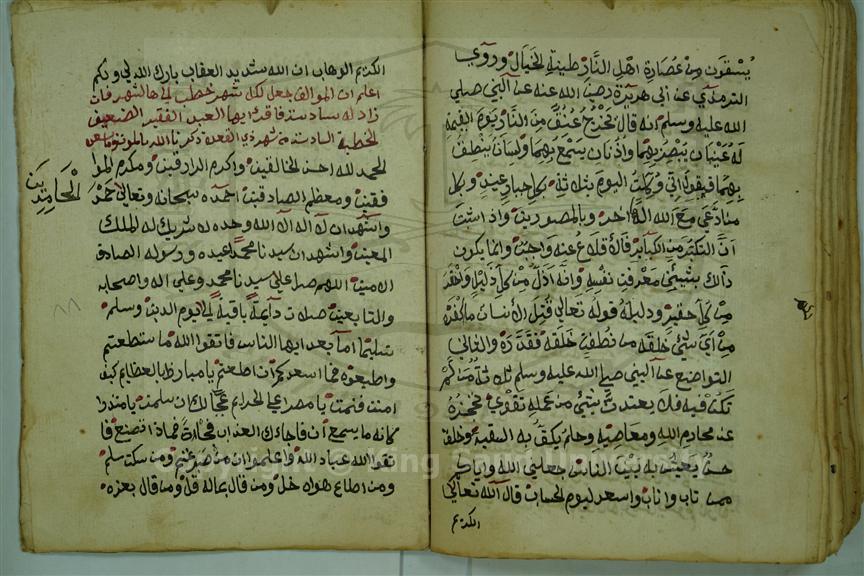 يسقون من عصارة اهل النار طينة الخبال وروي
الترمذي عن ابي هريرة رضي الله عنه عن النبي صلي
الله عليه وسلم انه قال تخرج عنق من النار يوم القيمة
له عينان يبصر بهما واذنان يسمع بهما ولسان ينطق
بهما فيقول اني وكلت اليوم بثلاثة بكل جبار عنيد وبكل
من ادعي مع الله الها اخر وبالمصورين واذ اثبت
ان التكبر من الكباير فالاقلاع عنه واجب وانما يكون
ذالك بشيئين معرفت نفسه وانه اذل من كل ذليل واحقر
من كل حقير ودليله قوله تعالي قتل الانسان ما اكفره
من اي شيئ خلقه من نطفة خلقه فقدره والثاني
التواضع عن النبي صلي الله عليه وسلم ثلاثة من لم
تكن فيه فلا يعتدن بشيئ من عمله تقوي تحجزه
عن محارم الله ومعاصيه وحلم يكف به السفيه وخلق
حسن يعيش به بين الناس جعلني الله واياكم
ممن تاب واناب واستعد ليوم الحساب قال الله تعالي
الكريم
الكريم الوهاب ان الله شديد العقاب بارك الله لي ولكم
اعلم ان المؤالف جعل لكل شهر خطب الي هاالشهر فان
زاد له سادسة فاقد ايها العبد الفقير الضعيف
الخطبة السادسة من شهر ذي القعدة تذكرنا الله بالموت
الحمد لله احسن الخالقين واكرم الرازقين ومكرم الموا
فقين ومعظم الصادقين احمده سبحانه وتعالي حمد
الحامدين
واشهد ان لا اله الا الله وحده لا شريك له الملك
المعين واشهد ان سيدنا محمدا عبده ورسوله الصادق
الامين اللهم صل علي سيدنا محمد وعلي اله واصحابه
والتابعين صلات دآيمة باقية الي يوم الدين وسلم
تسليما اما بعد ايها الناس فاتقوا الله ما ستطعتم
واطيعوه فما اسعدكم ان اطعتم يا مبارظا بالعظايم كيف
امنت فنمت يا مصرا علي الحرايم عجبا لك ان سلمت
كانه ما يسمع ان فاجاءك العذاب فماذا تصنع فا
تقوا الله عباد الله واعلموا ان من صبر غنم ومن سكت سلم
ومن اطاع هواه ضل ومن قال بماله قل ومن قال بعزه